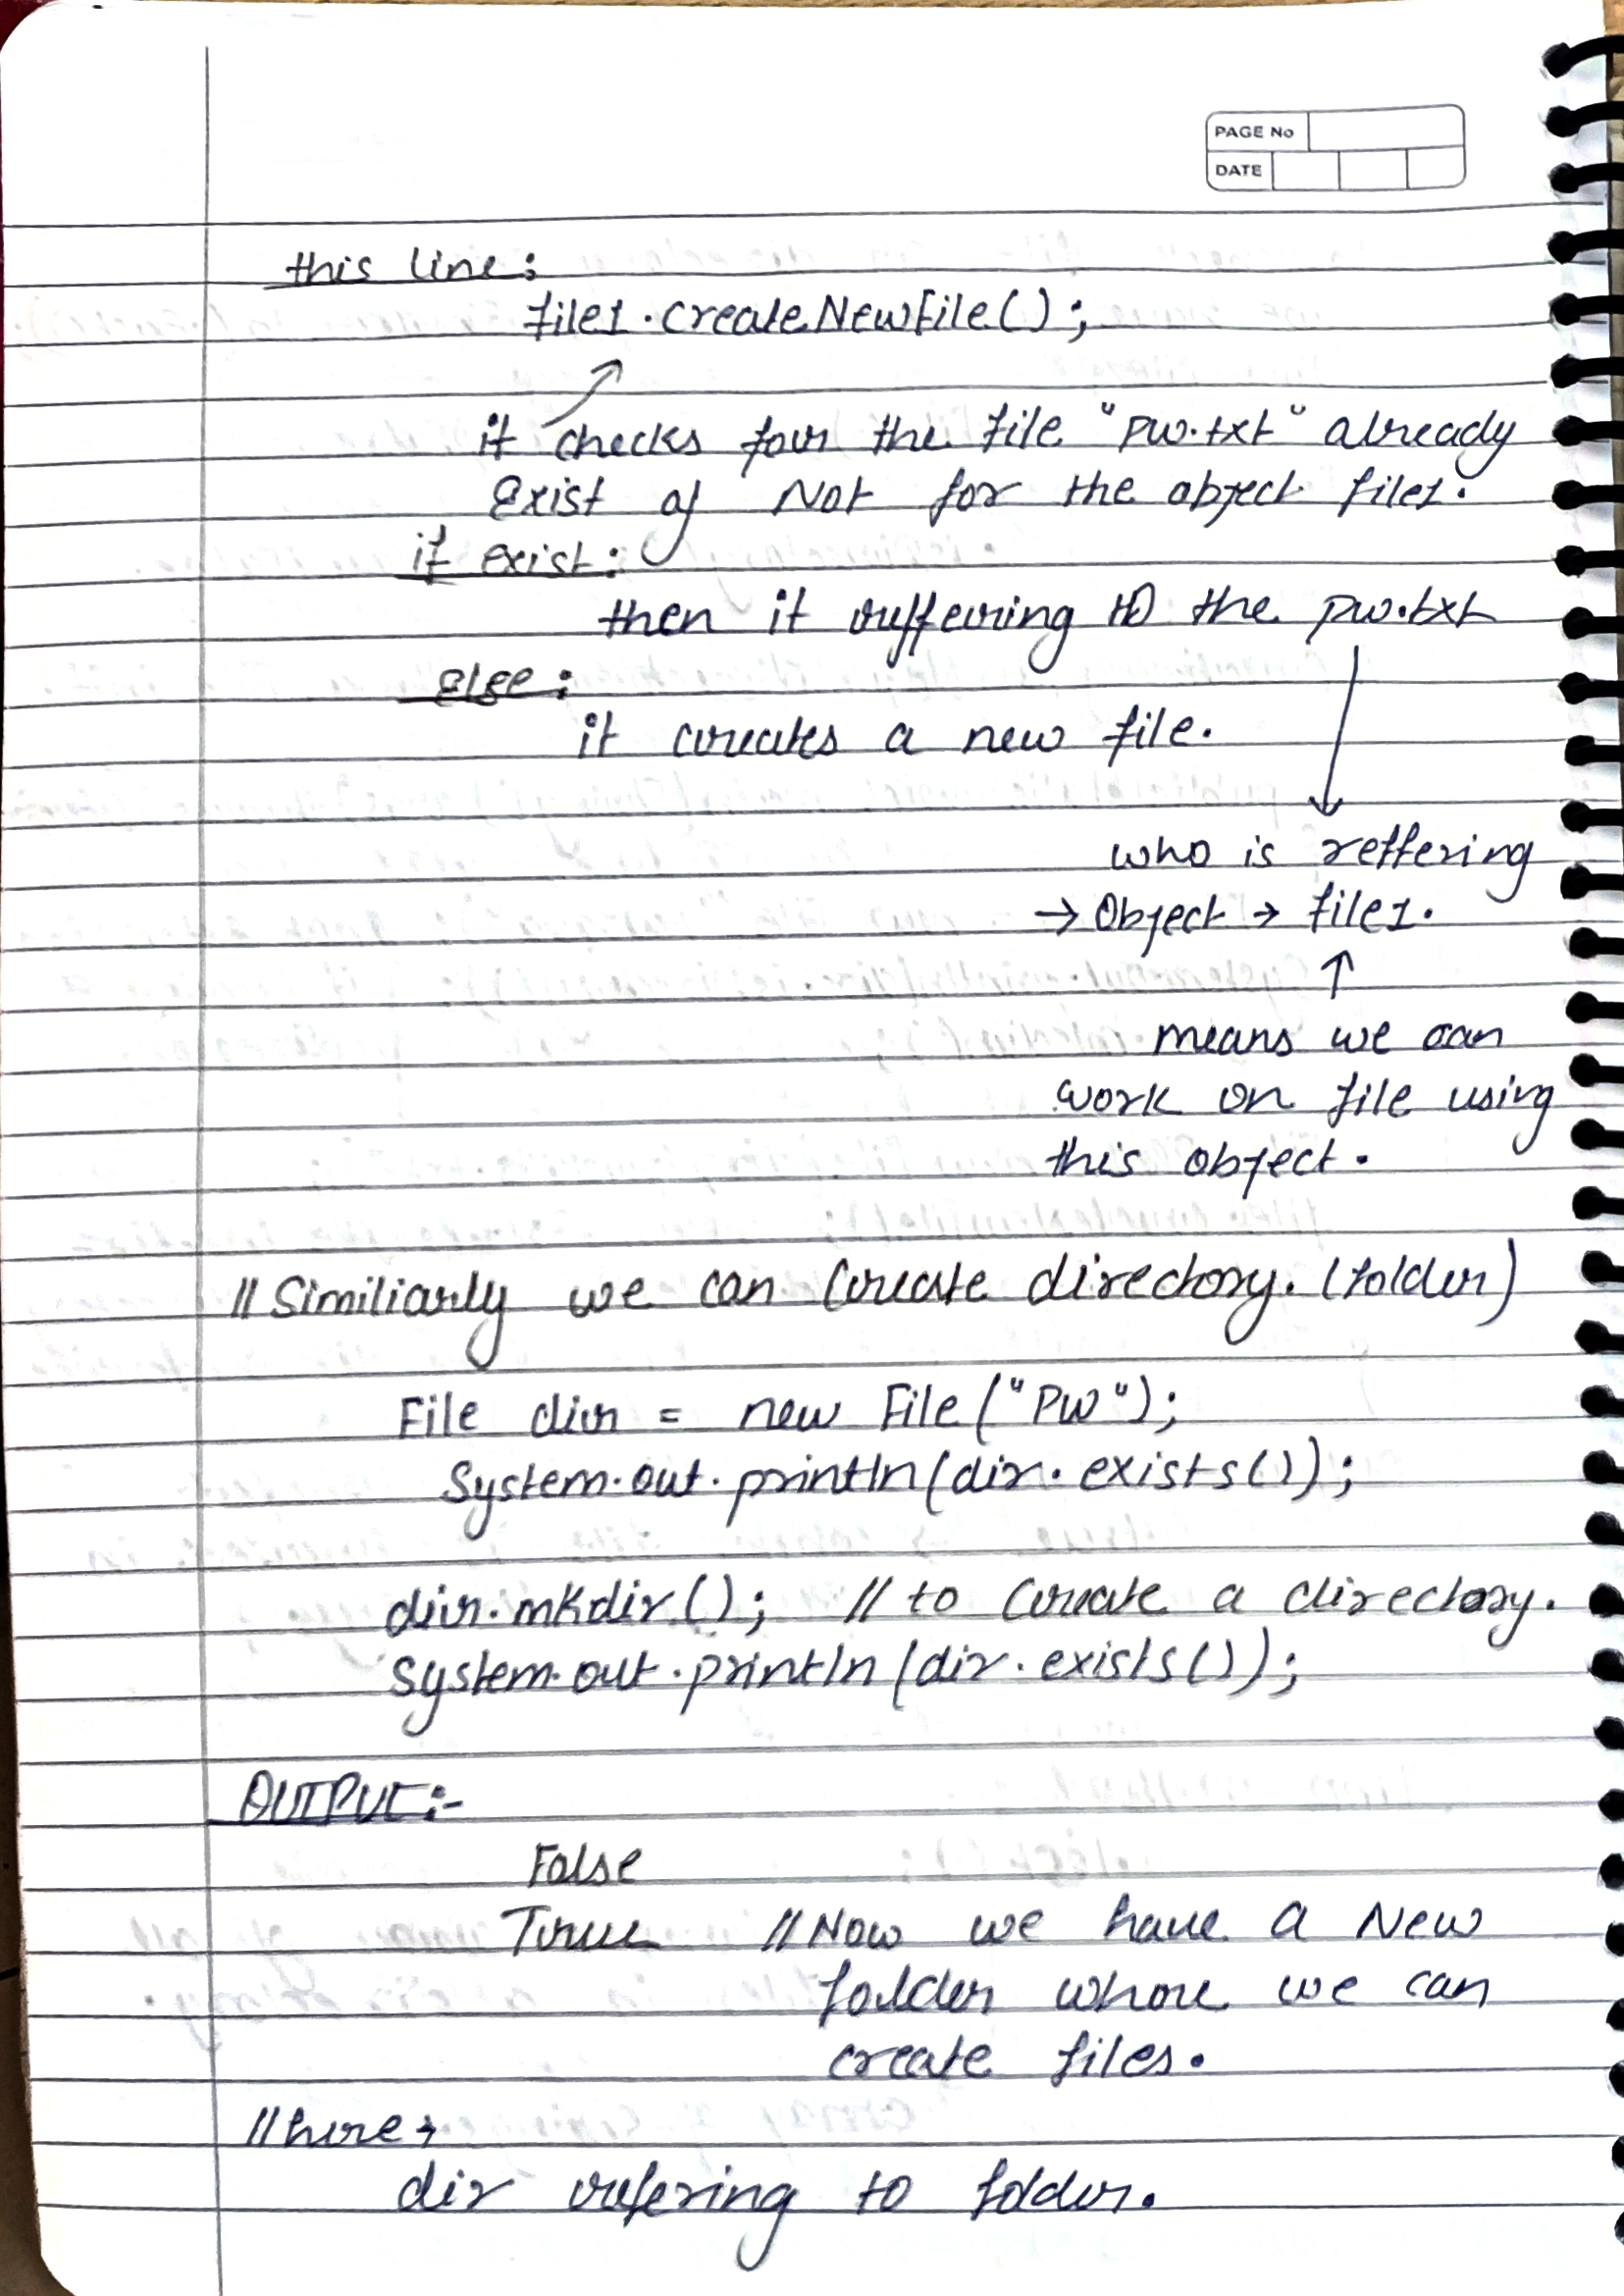 PAGE No
DATE
this line:
file1.createNewFile();
it checks for the file "pw.txt" already
Exist of Not for the object file1.
if exist:
then it reffering to the pw.txt
else:
it creates a new file.
who is reffering
→ Object → file1.
means we can
work on file using
this object.
// Similiarly we can Create directory. (folder)
File dir = new File("PW");
System.out.println(dir.exists());
dir.mkdir(); // to Create a directory.
System.out.println(dir.exists());
OUTPUT:-
False
True // Now we have a New
folder where we can
create files.
// here →
dir refering to folder.